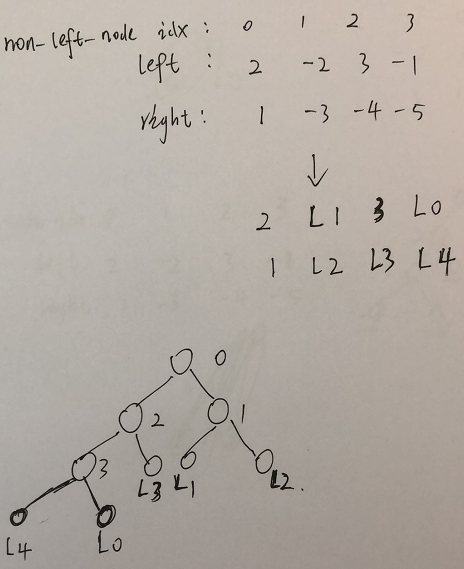 non-left-node idx : 0 1 2 3
left : 2 -2 3 -1
right : 1 -3 -4 -5
2 L1 3 L0
1 L2 L3 L4
0
2 1
3 L3 L1 L2.
L4 L0